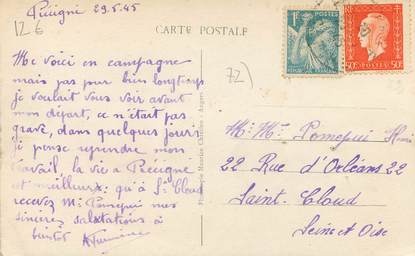 Précigné 29.5.45
126
CARTE POSTALE
Me voici en campagne
mais pas pour bien longtemps
je voulait vous voir avant
mon départ, ce n'était pas
grave, dans quelques jours
je pense reprendre mon
travail la vie a Précigné
et meilleux: qu'à St Cloud
recevez Mr Pomequi mes
sincères salutations à
bientôt
72)
Mr. Mme Pomequi
22 Rue d'Orléans 22
Saint. Cloud
Seine et Oise
POSTES
1F
50c
50c